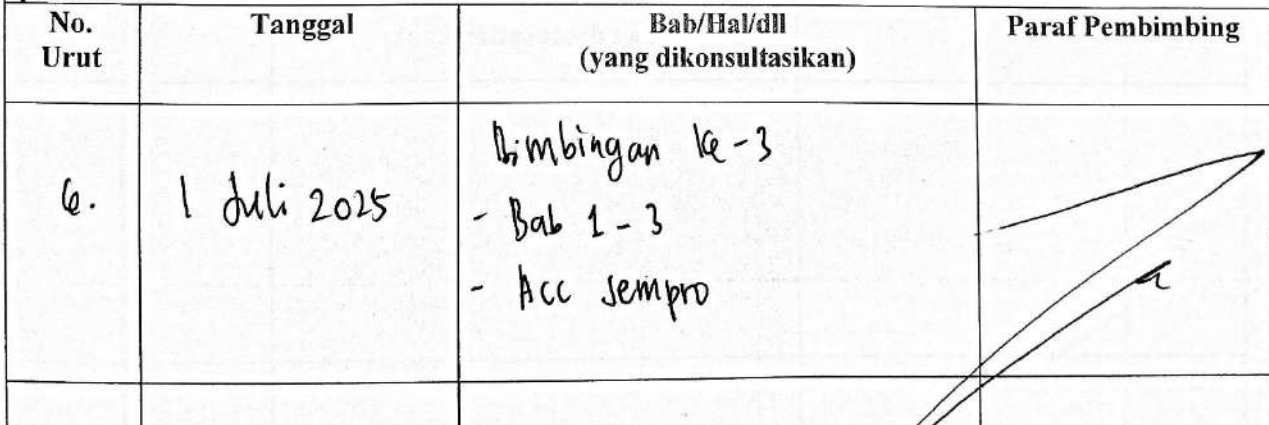 No. Urut
Tanggal
Bab/Hal/dll
(yang dikonsultasikan)
Paraf Pembimbing
6.
1 Juli 2025
Bimbingan ke-3
- Bab 1-3
- Acc Sempro